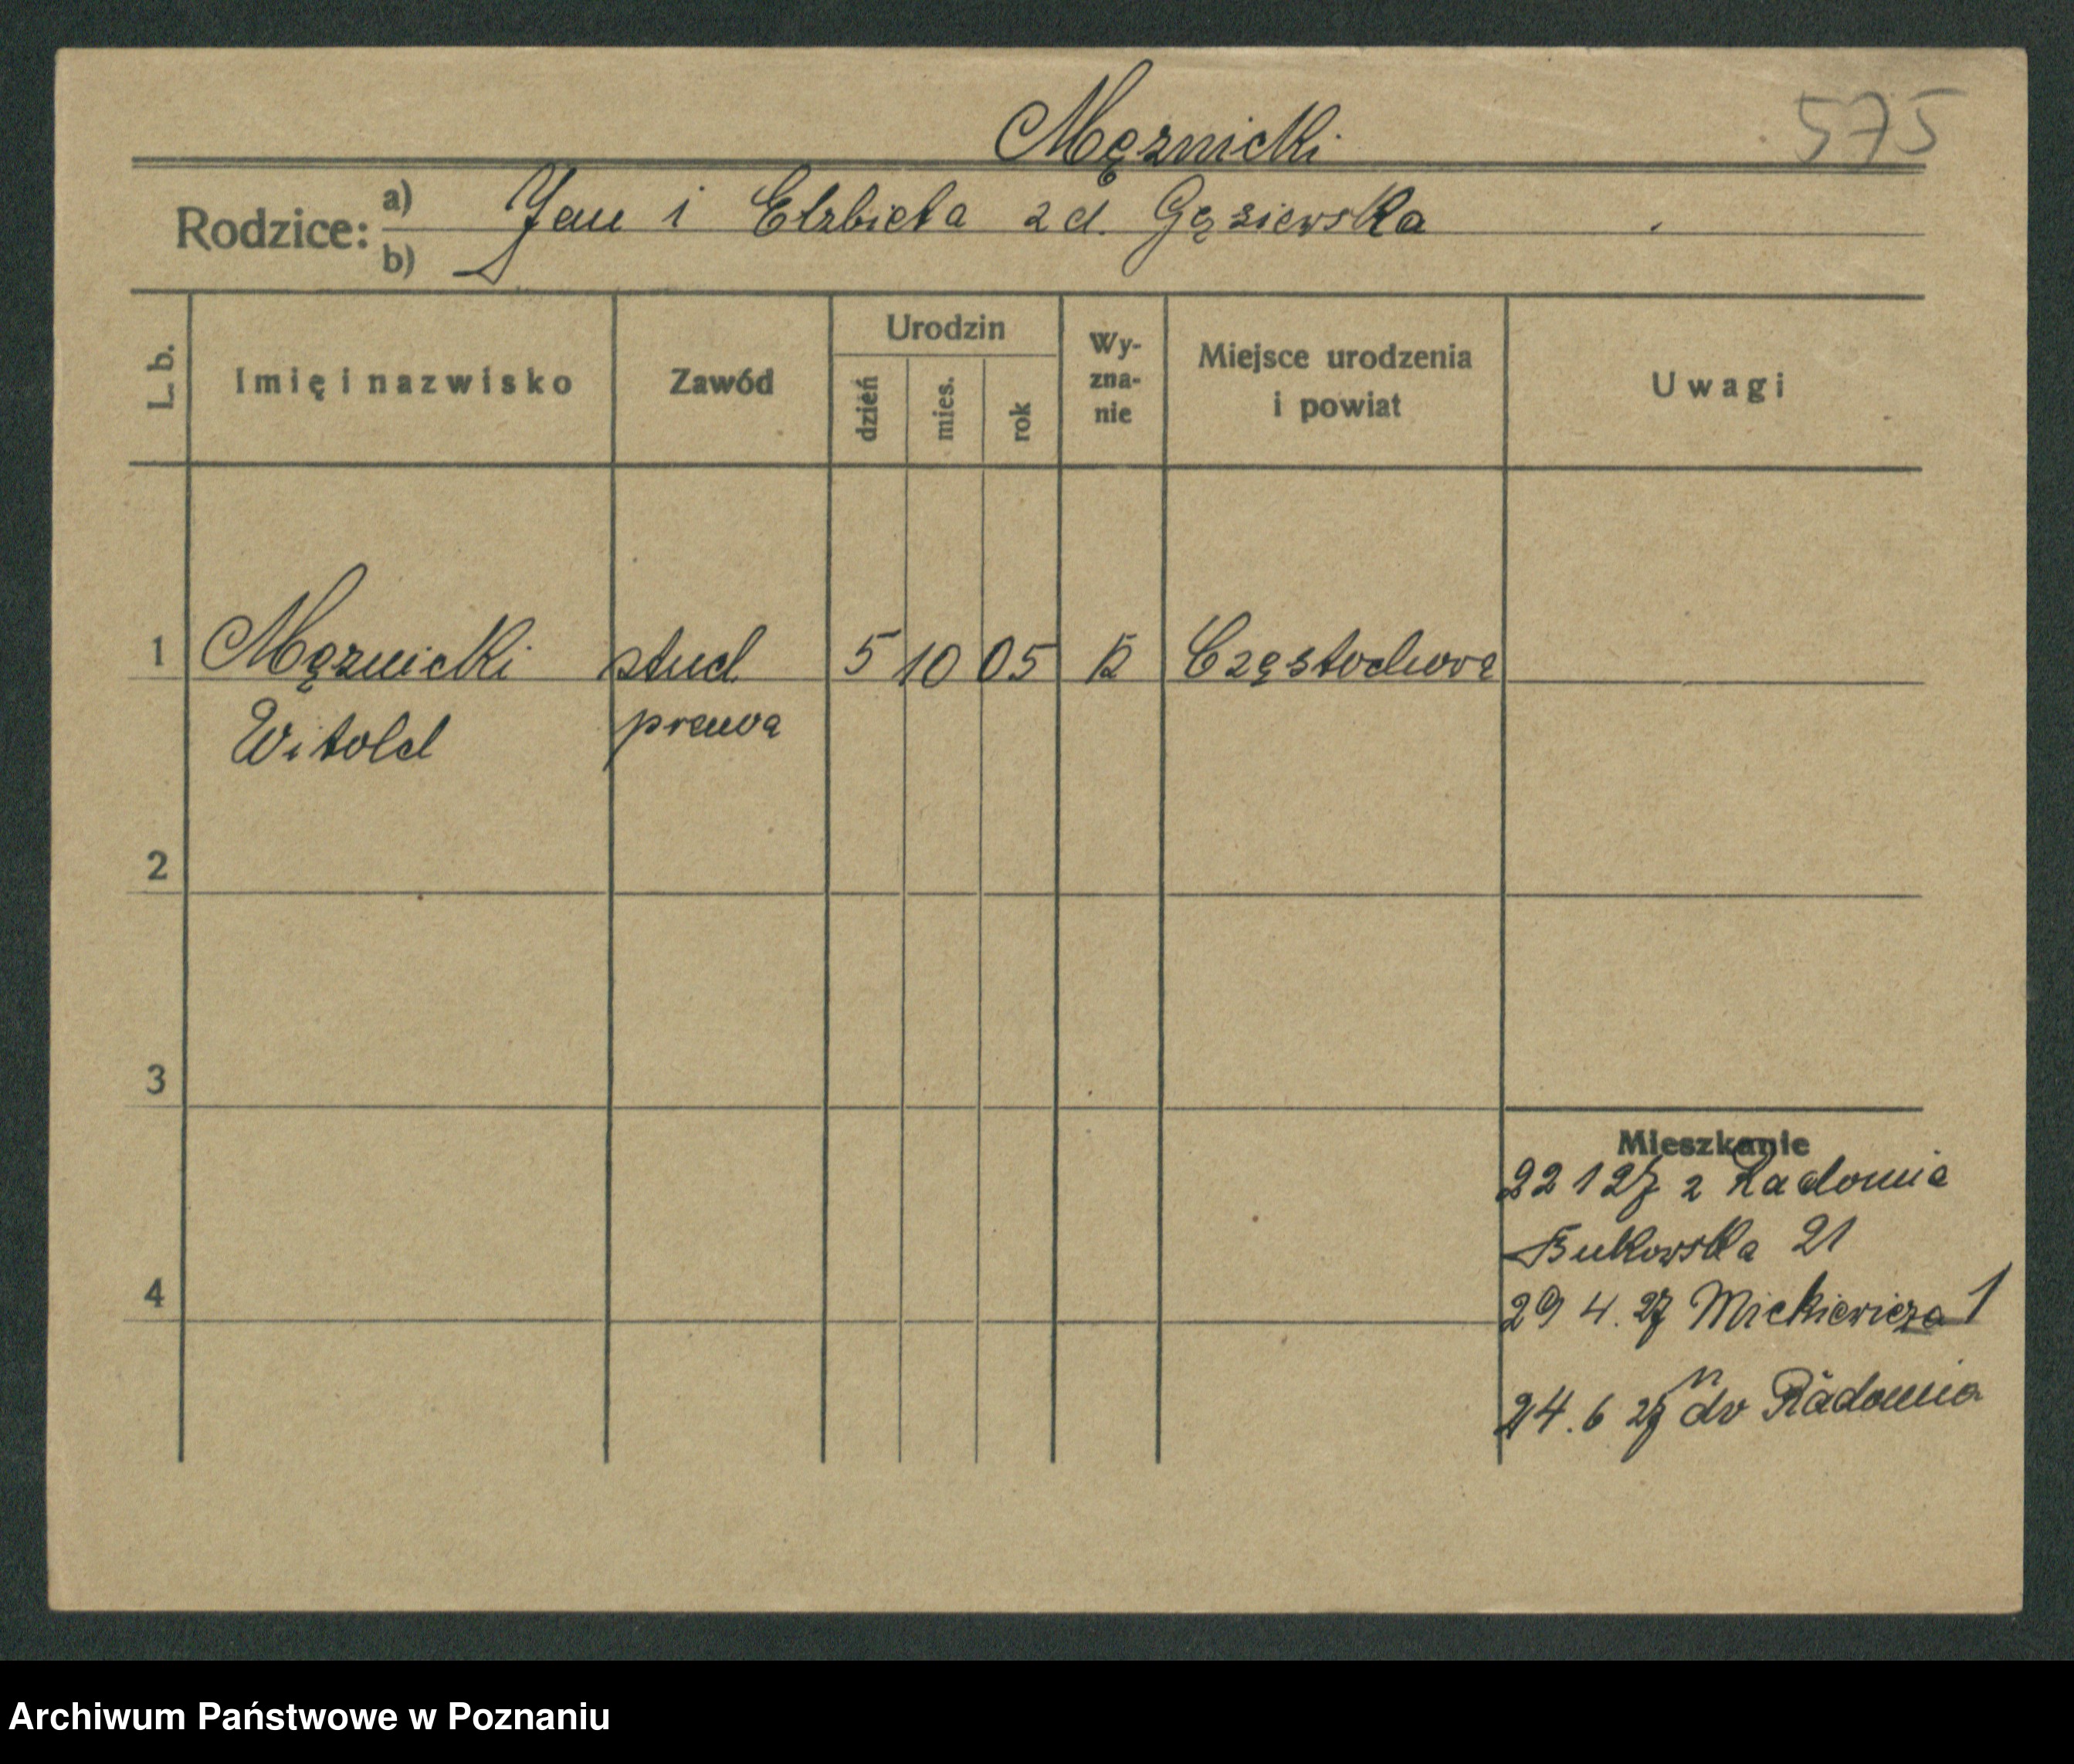 Mężnicki 575
Rodzice: a) Jan i Elżbieta z d. Gęsiewska
b)
L. b. Imię i nazwisko Zawód Urodzin dzień mies. rok Wy-zna-nie Miejsce urodzenia i powiat Uwagi
1 Mężnicki stud 5 10 05 k Częstochowa
Witold prawa
2
3
Mieszkanie
22 1 27 z Radomia
Bukowska 21
4
29 4. 27 Mickiewicza 1
24. 6 27 do Radomia
Archiwum Państwowe w Poznaniu